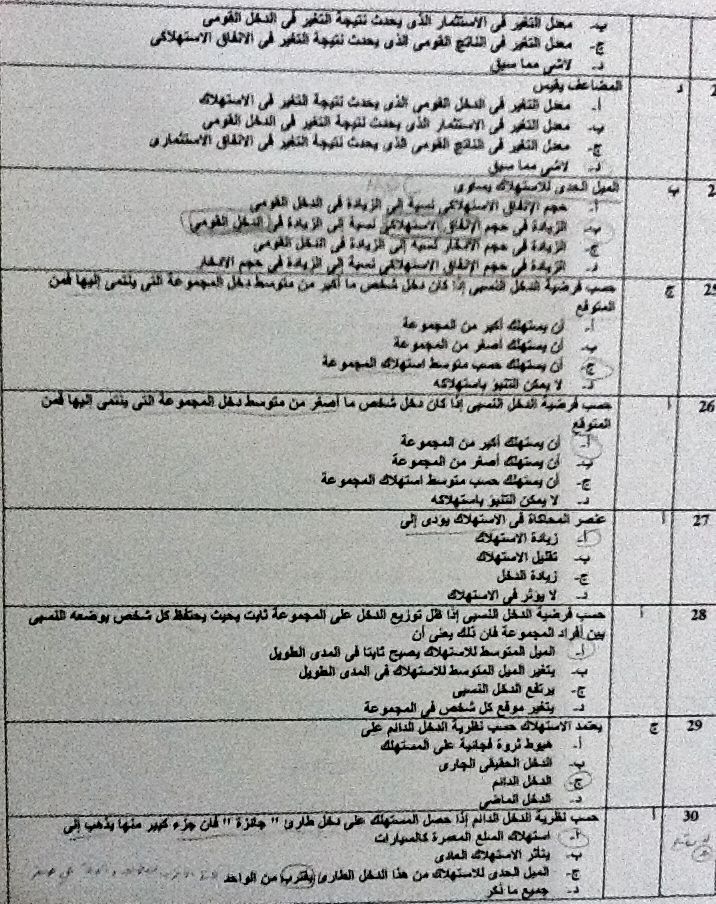 ب- معدل التغير فى الاستثمار الذى يحدث نتيجة التغير فى الدخل القومى
ج- معدل التغير فى الناتج القومى الذى يحدث نتيجة التغير فى الانفاق الاستهلاكى
د- لاشى مما سبق
2 د المضاعف يقيس
أ- معدل التغير فى الدخل القومى الذى يحدث نتيجة التغير فى الاستهلاك
ب- معدل التغير فى الاستثمار الذى يحدث نتيجة التغير فى الدخل القومى
ج- معدل التغير فى الناتج القومى الذى يحدث نتيجة التغير فى الانفاق الاستثمارى
د- لاشى مما سبق
2 ب الميل الحدى للاستهلاك يساوى
أ- حجم الإنفاق الاستهلاكى نسبة إلى الزيادة فى الدخل القومى
ب- الزيادة فى حجم الإنفاق الاستهلاكى نسبة إلى الزيادة فى الدخل القومى
ج- الزيادة فى حجم الادخار نسبة إلى الزيادة فى الدخل القومى
د- الزيادة فى حجم الإنفاق الاستهلاكى نسبة إلى الزيادة فى حجم الادخار
25 ج حسب فرضية الدخل النسبى إذا كان دخل شخص ما أكبر من متوسط دخل المجموعة التى ينتمى إليها فمن
المتوقع
أ- أن يستهلك أكبر من المجموعة
ب- أن يستهلك أصغر من المجموعة
ج- أن يستهلك حسب متوسط استهلاك المجموعة
د- لا يمكن التنبؤ باستهلاكه
26 أ حسب فرضية الدخل النسبى إذا كان دخل شخص ما أصغر من متوسط دخل المجموعة التى ينتمى إليها فمن
المتوقع
أ- أن يستهلك أكبر من المجموعة
ب- أن يستهلك أصغر من المجموعة
ج- أن يستهلك حسب متوسط استهلاك المجموعة
د- لا يمكن التنبؤ باستهلاكه
27 أ عنصر المحاكاة فى الاستهلاك يؤدى إلى
أ- زيادة الاستهلاك
ب- تقليل الاستهلاك
ج- زيادة الدخل
د- لا يؤثر فى الاستهلاك
28 أ حسب فرضية الدخل النسبى إذا ظل توزيع الدخل على المجموعة ثابت بحيث يحتفظ كل شخص بوضعه النسبى
بين أفراد المجموعة فان ذلك يعنى أن
أ- الميل المتوسط للاستهلاك يصبح ثابتا فى المدى الطويل
ب- يتغير الميل المتوسط للاستهلاك فى المدى الطويل
ج- يرتفع الدخل النسبى
د- يتغير موقع كل شخص فى المجموعة
29 ج يعتمد الاستهلاك حسب نظرية الدخل الدائم على
أ- هبوط ثروة فجائية على المستهلك
ب- الدخل الحقيقى الجارى
ج- الدخل الدائم
د- الدخل الماضى
30 أ حسب نظرية الدخل الدائم إذا حصل المستهلك على دخل طارئ " جائزة " فان جزء كبير منها يذهب إلى
أ- استهلاك السلع المعمرة كالسيارات
ب- يتأثر الاستهلاك العادى
ج- الميل الحدى للاستهلاك من هذا الدخل الطارئ يقترب من الواحد
د- جميع ما ذكر